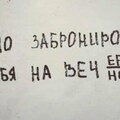 ЗАБРОНИРО
БЯ НА ВЕЧ